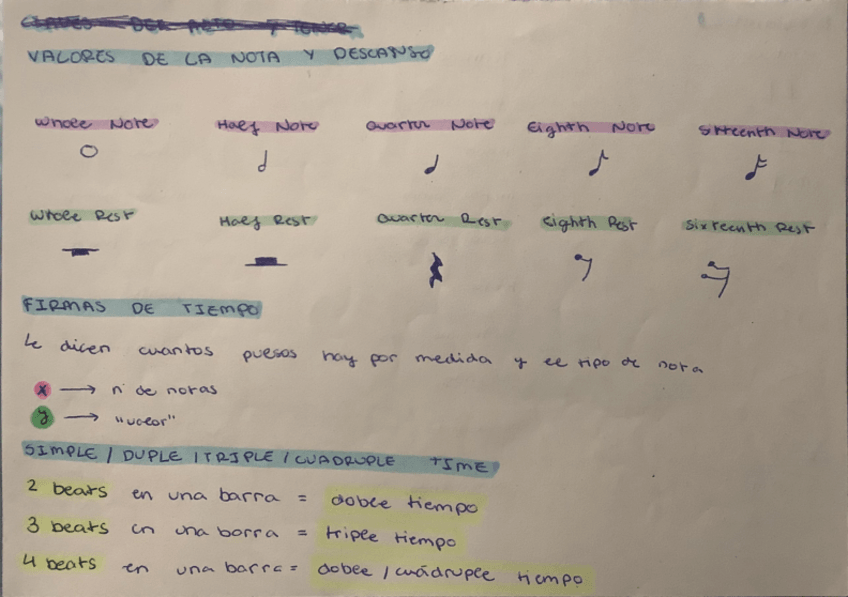 VALORES DE LA NOTA Y DESCANSO
Whole Note Half Note Quarter Note Eighth Note Sixteenth Note
Whole Rest Half Rest Quarter Rest Eighth Rest Sixteenth Rest
FIRMAS DE TIEMPO
Le dicen cuantos pulsos hay por medida y el tipo de nota
x → nº de notas
y → "valor"
SIMPLE / DUPLE / TRIPLE / CUADRUPLE TIME
2 beats en una barra = doble tiempo
3 beats en una barra = triple tiempo
4 beats en una barra = doble / cuádruple tiempo